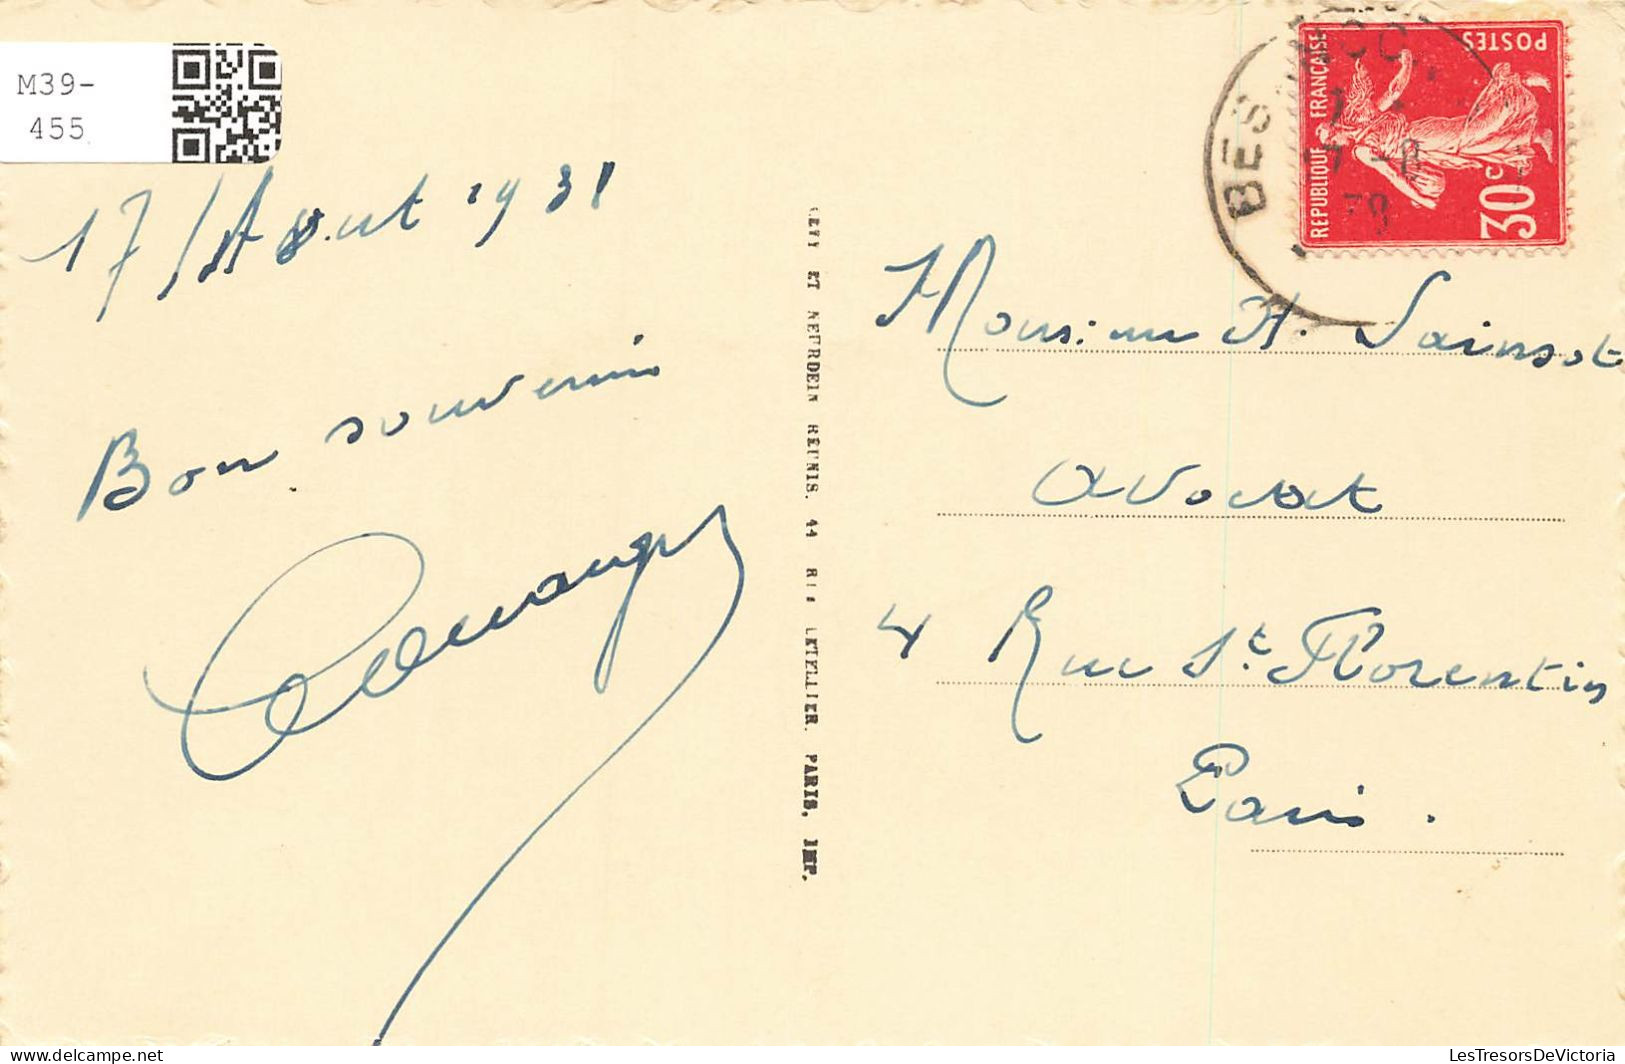 M39-
455
17/Août 1938
Bon souvenir
LEVY ET NEURDEIN RÉUNIS. 44 RUE LETELLIER. PARIS, IMP.
POSTES
REPUBLIQUE FRANÇAISE
30c
17 -8
38
Monsieur A. Sainsot
avocat
4 Rue St Florentin
Paris.
LesTresorsDeVictoria